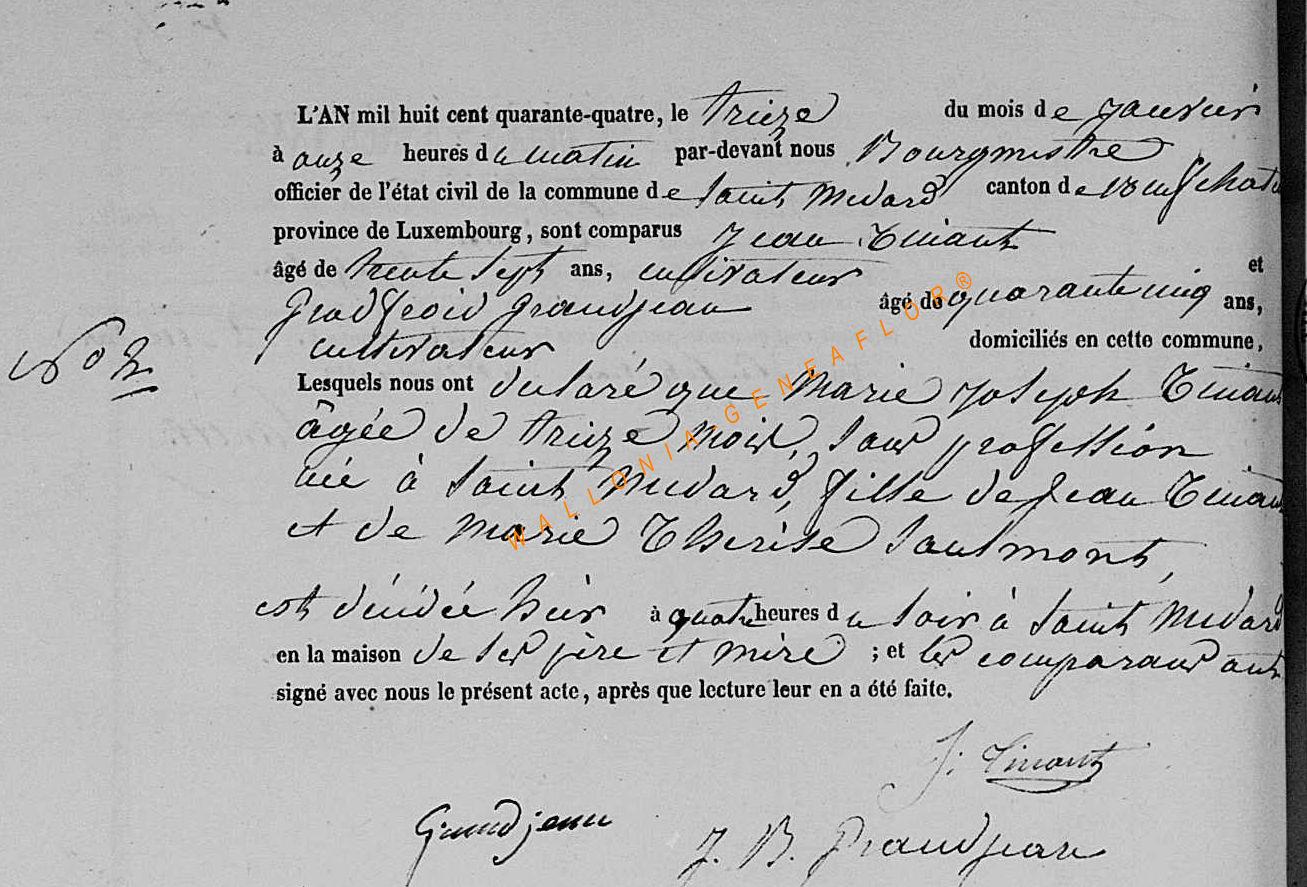 L'AN mil huit cent quarante-quatre, le treize du mois de Janvier
à onze heures du matin par-devant nous Bourgmestre
officier de l'état civil de la commune de Saint Medard canton de Neufchate
province de Luxembourg, sont comparus Jean Tinant
âgé de trente sept ans, cultivateur et
Grandjean âgé de quarante cinq ans,
cultivateur domiciliés en cette commune,
No 2
Lesquels nous ont declaré que Marie Joseph Tinant
âgée de treize mois, sans profession
née à Saint Medard, fille de Jean Tinant
et de Marie Therèse Saulmont,
est décédée hier à quatre heures du soir à Saint Medard
en la maison de ses père et mère ; et les comparans ont
signé avec nous le présent acte, après que lecture leur en a été faite.
J. Tinant
Grandjean
J. B. Grandjean
WALLONIA-GENEAFLOR®